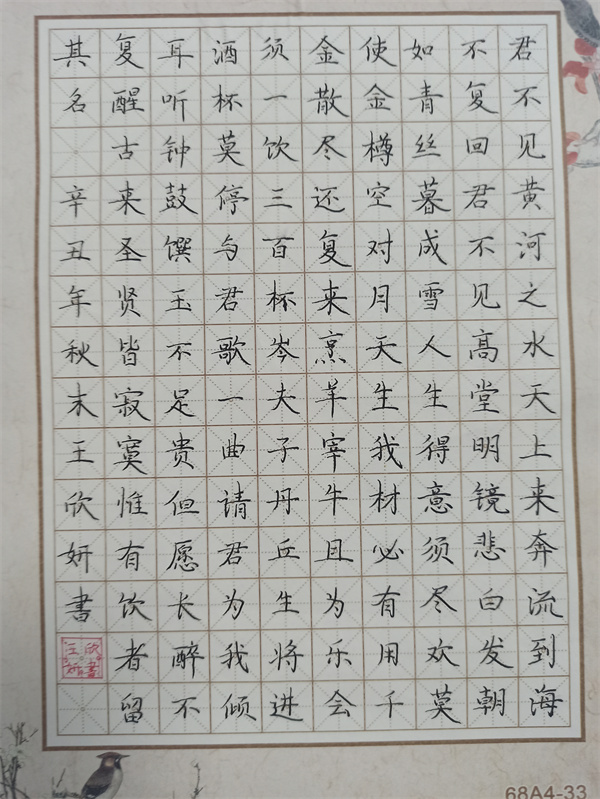 君不见黄河之水天上来奔流到海
不复回君不见高堂明镜悲白发朝
如青丝暮成雪人生得意须尽欢莫
使金樽空对月天生我材必有用千
金散尽还复来烹羊宰牛且为乐会
须一饮三百杯岑夫子丹丘生将进
酒杯莫停与君歌一曲请君为我倾
耳听钟鼓馔玉不足贵但愿长醉不
复醒古来圣贤皆寂寞惟有饮者留
其名辛丑年秋末王欣妍書
68A4-33